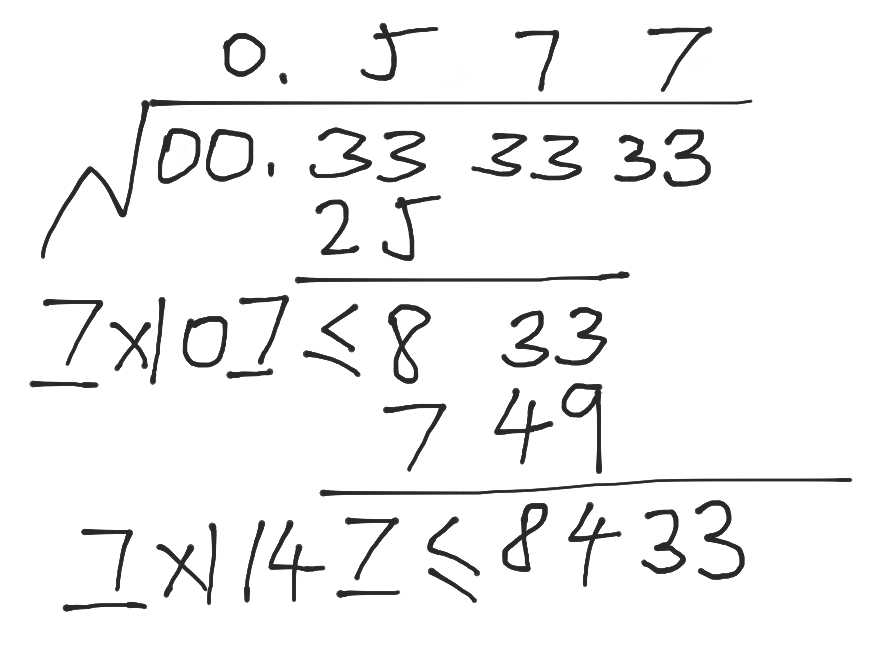 0. 5 7 7
√00. 33 33 33
25
7×107 ≤ 8 33
7 49
7×1147 ≤ 8433